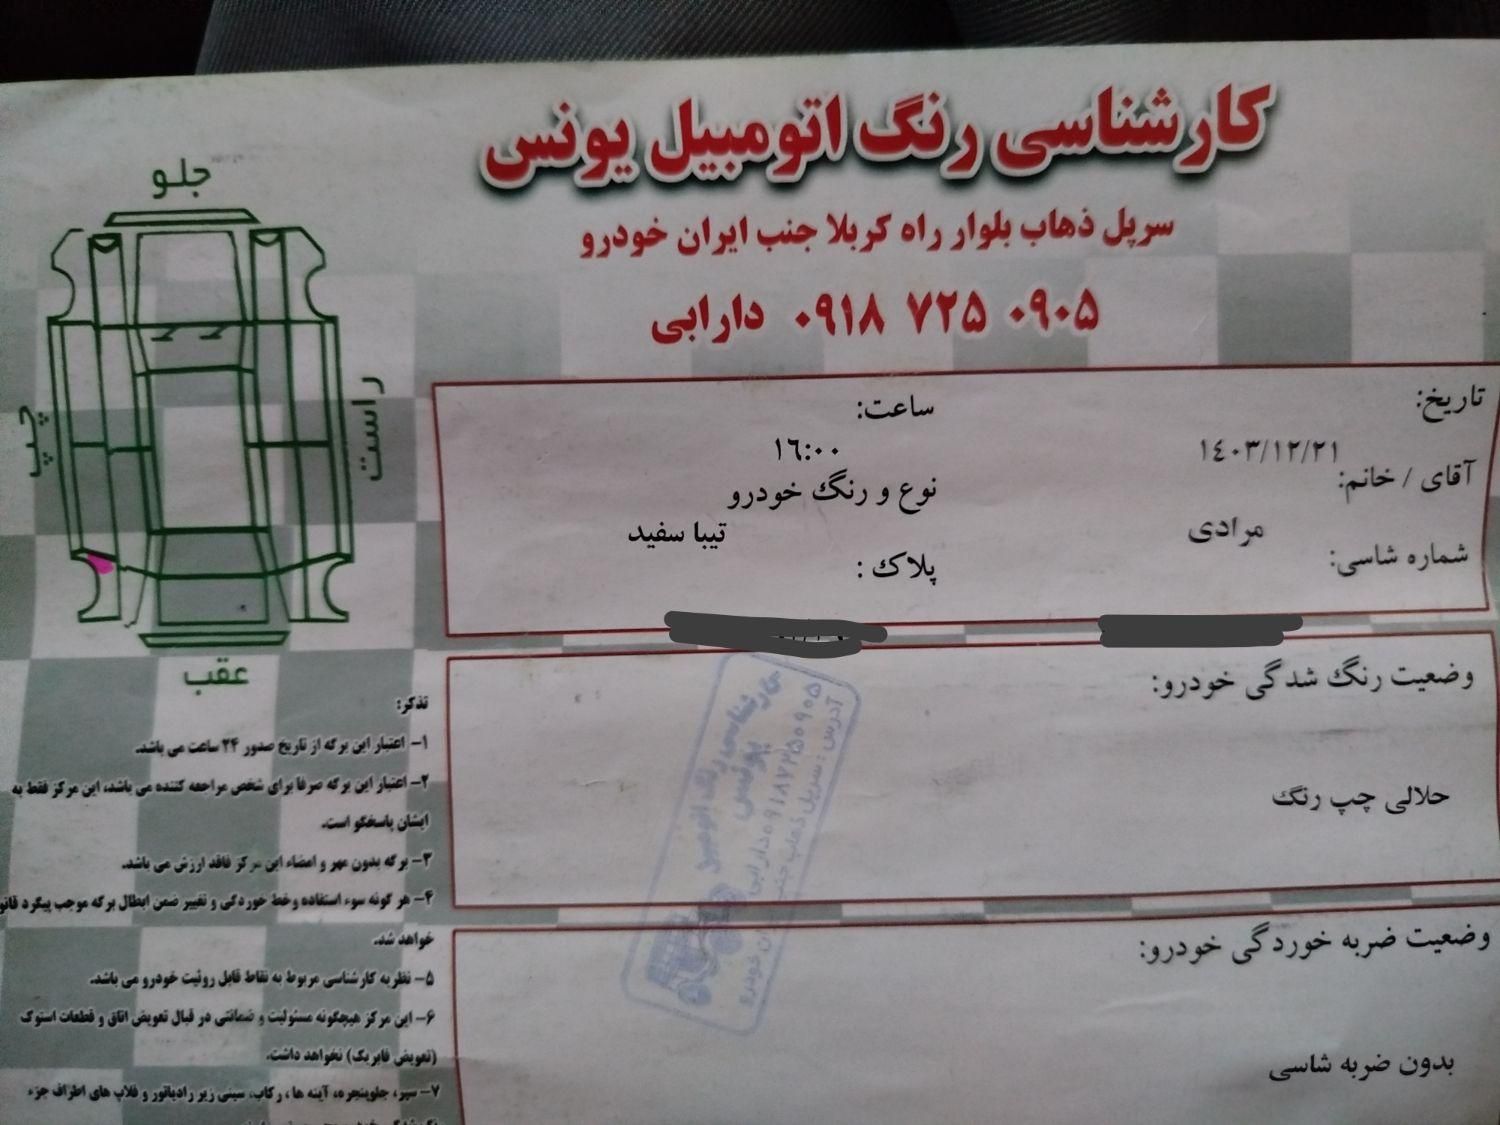 کارشناسی رنگ اتومبیل یونس
سرپل ذهاب بلوار راه کربلا جنب ایران خودرو
۰۹۱۸ ۷۲۵ ۰۹۰۵ دارابی
جلو
راست
چپ
عقب
تاریخ:
۱٤۰۳/۱۲/۲۱
ساعت:
۱٦:۰۰
آقای / خانم:
مرادی
نوع و رنگ خودرو
تیبا سفید
شماره شاسی:
پلاک :
وضعیت رنگ شدگی خودرو:
حلالی چپ رنگ
وضعیت ضربه خوردگی خودرو:
بدون ضربه شاسی
کارشناسی رنگ اتومبیل
یونس
۰۹۱۸۷۲۵۰۹۰۵ دارابی
آدرس : سرپل ذهاب جنب ایران خودرو
تذکر:
۱- اعتبار این برگه از تاریخ صدور ۲۴ ساعت می باشد.
۲- اعتبار این برگه صرفا برای شخص مراجعه کننده می باشد، این مرکز فقط به
ایشان پاسخگو است.
۳- برگه بدون مهر و امضاء این مرکز فاقد ارزش می باشد.
۴- هر گونه سوء استفاده وخط خوردگی و تغییر ضمن ابطال برگه موجب پیگرد
خواهد شد.
۵- نظریه کارشناسی مربوط به نقاط قابل روئیت خودرو می باشد.
۶- این مرکز هیچگونه مسئولیت و ضمانتی در قبال تعویض اتاق و قطعات استوک
(تعویض فابریک) نخواهد داشت.
۷- سپر، جلوپنجره، آینه ها ، رکاب، سینی زیر رادیاتور و قلاب های اطراف جزء